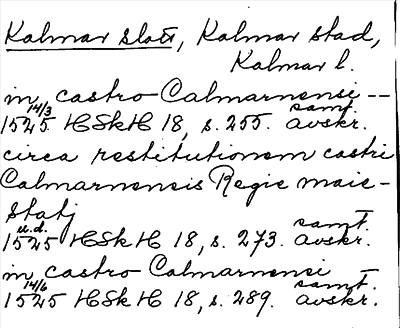 Kalmar slott, Kalmar stad,
Kalmar l.
in castro Calmarnensi --
14/3 samt.
1525 HSkH 18, s. 255. avskr.
circa restitutionem castri
Calmarnensis Regie maie-
statj
u.d. samt.
1525 HSkH 18, s. 273. avskr.
in castro Calmarnensi –
14/6 samt.
1525 HSkH 18, s. 289. avskr.